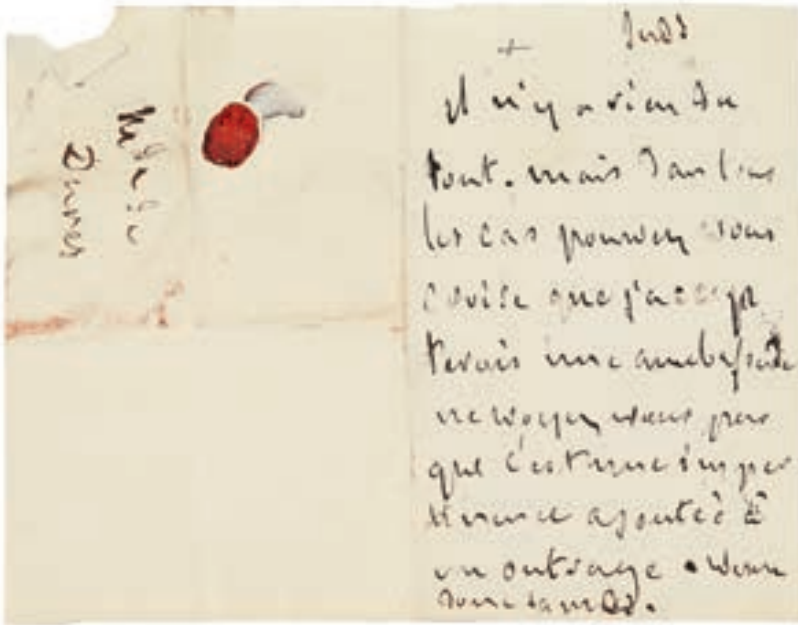 Md de
Duras
+ jeudi
il n'y a rien du
tout. mais dans tous
les cas pouvez vous
croire que j'accep
terois une ambassade
ne voyez vous pas
que c'est une imper
tinence ajoutée à
un outrage.